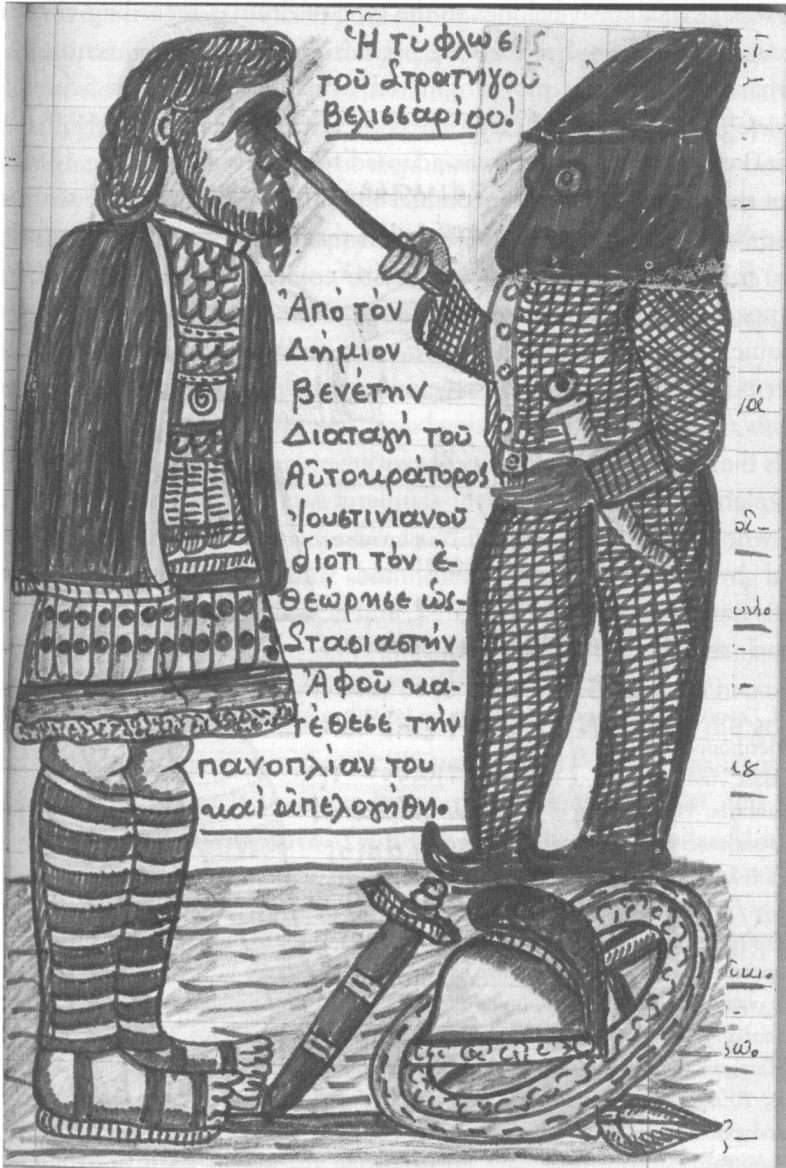 Ἡ τύφλωσις
τοῦ Στρατηγοῦ
Βελισσαρίου!
Ἀπό τόν
Δήμιον
Βενέτην
Διαταγή τοῦ
Αὐτοκράτορος
Ἰουστινιανοῦ
διότι τόν ἐ-
θεώρησε ὡς-
Στασιαστήν
Ἀφοῦ κα-
τέθεσε τήν
πανοπλίαν του
καί ἀπελογήθη.